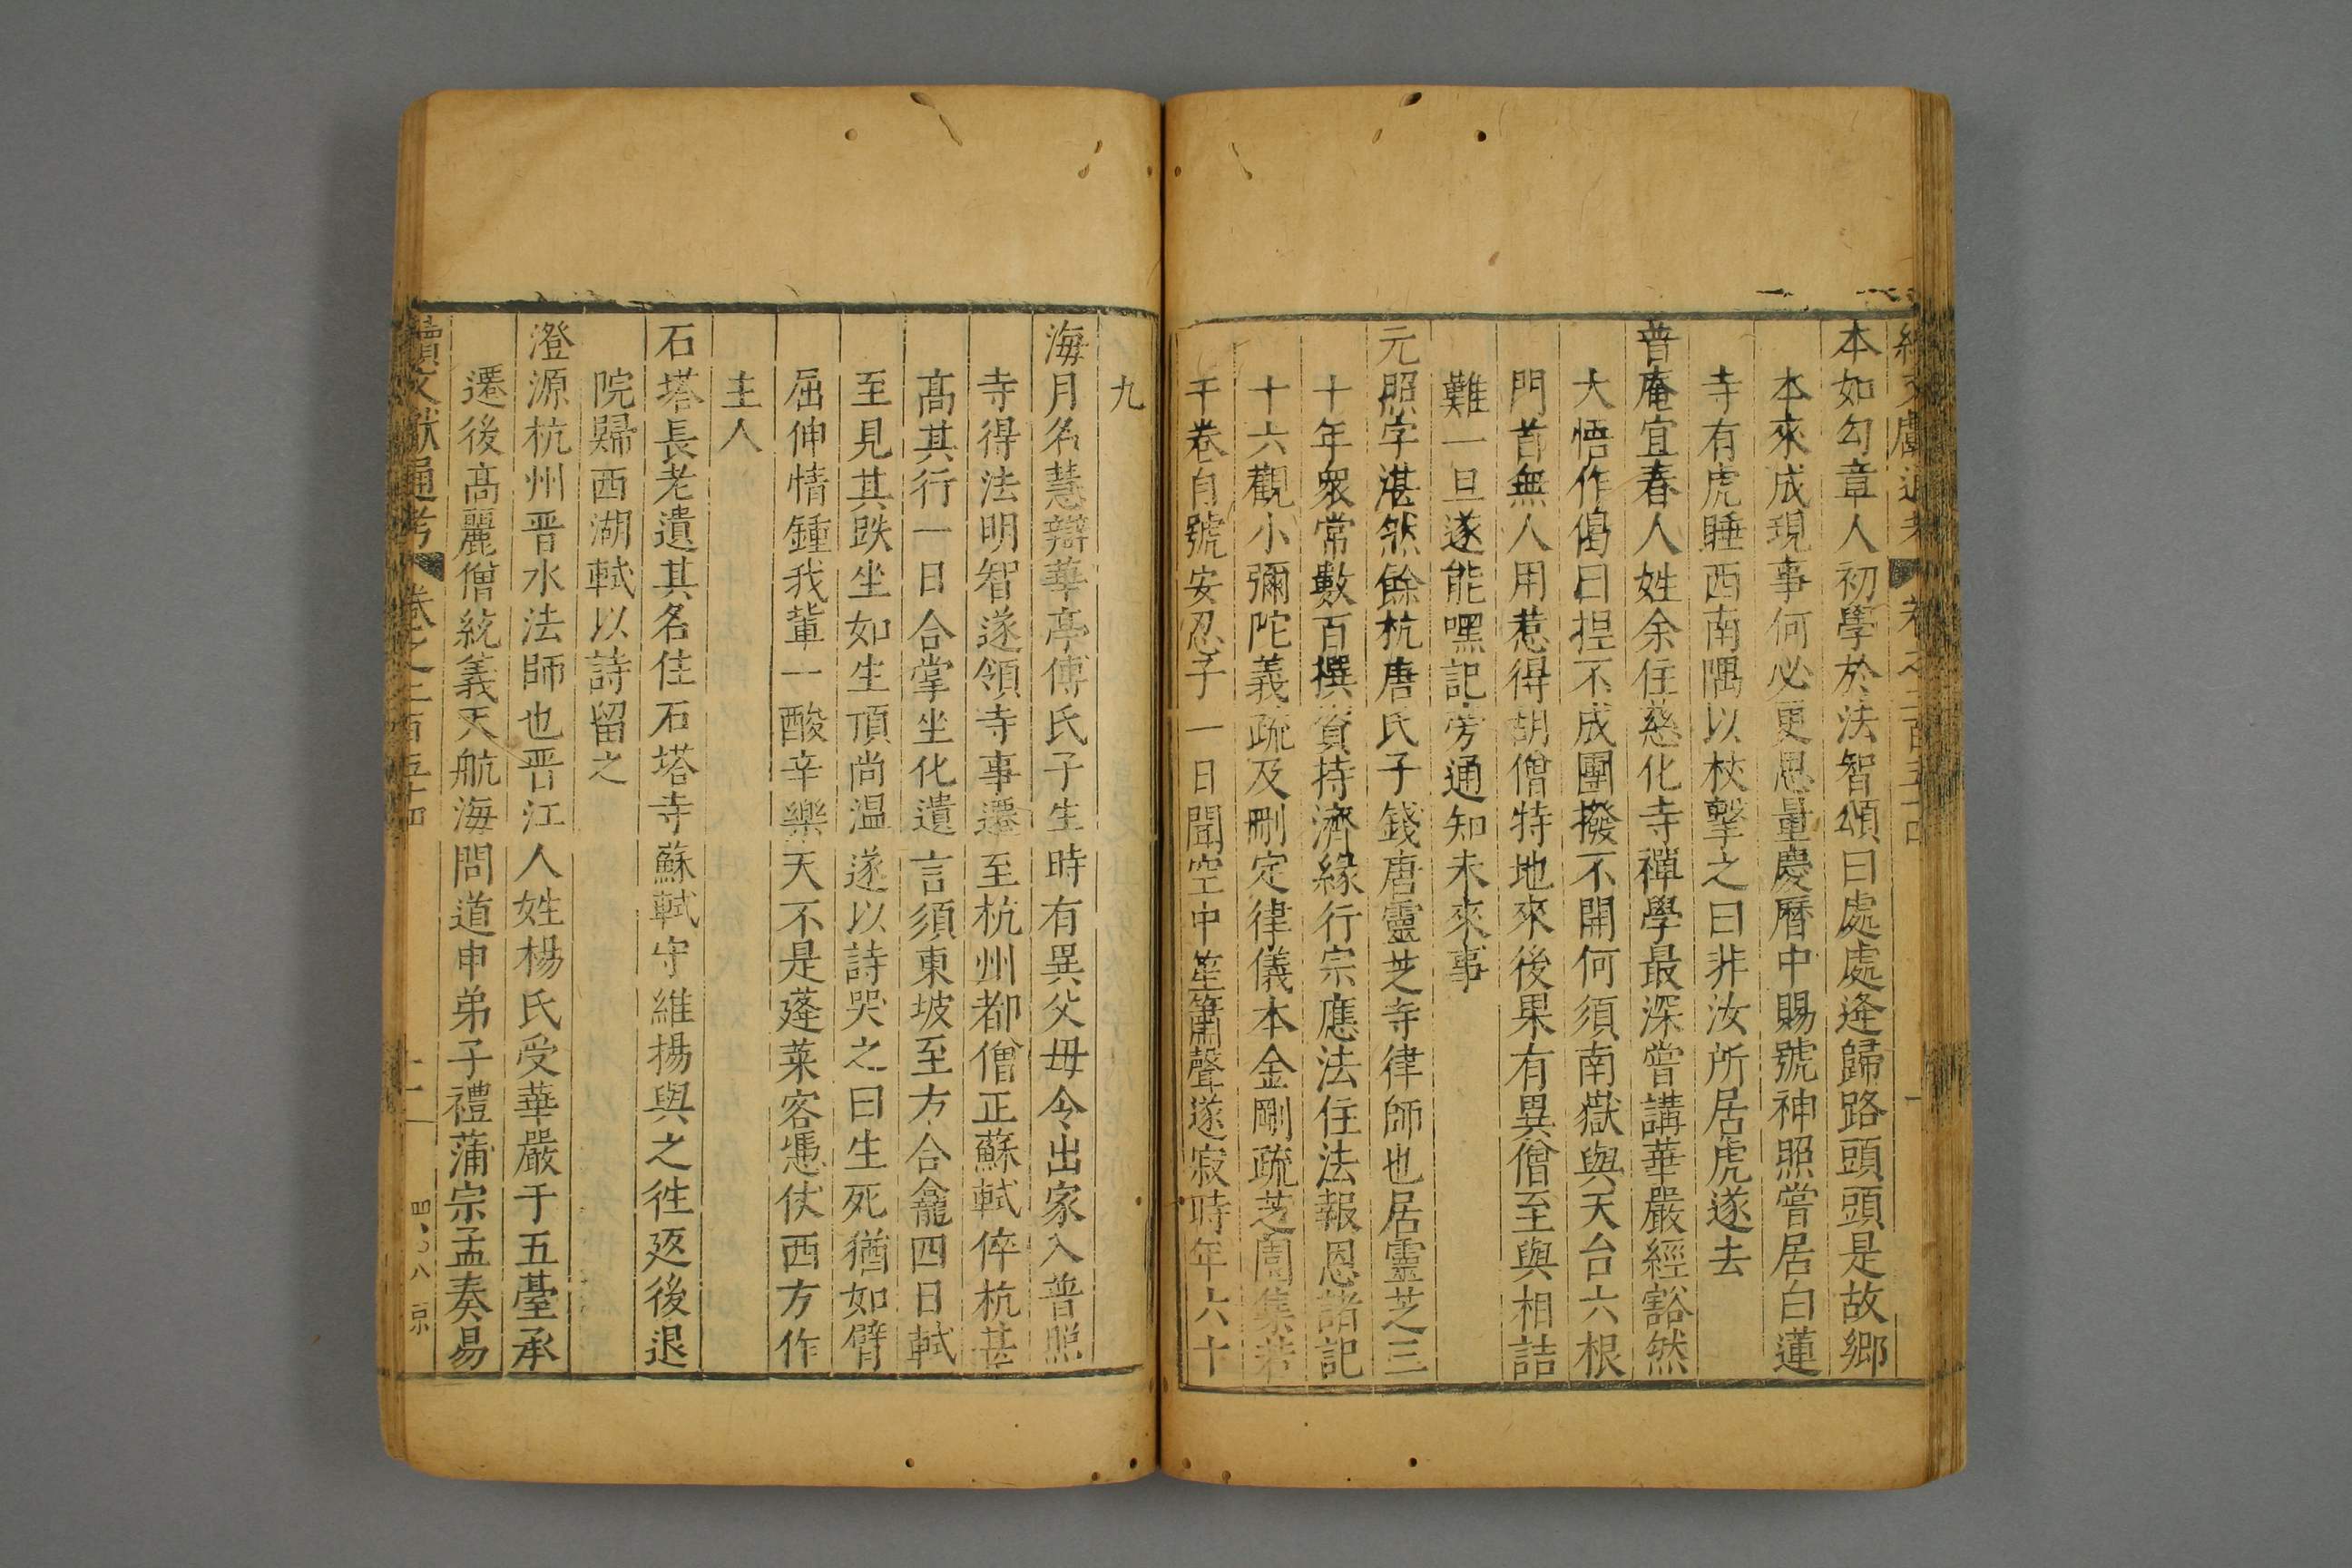 本如勾章人初學於法智頌曰處處逢歸路頭頭是故鄉
本來成現事何必更思量慶曆中賜號神照嘗居白蓮
寺有虎睡西南隅以杖擊之曰非汝所居虎遂去
普庵宜春人姓余住慈化寺禪學最深嘗講華嚴經豁然
大悟作偈曰捏不成團撥不開何須南嶽與天台六根
門首無人用惹得胡僧特地來後果有異僧至與相詰
難一旦遂能嘿記旁通知未來事
元照字湛然餘杭唐氏子錢唐靈芝寺律師也居靈芝三
十年衆常數百撰資持濟緣行宗應法住法報恩諸記
十六觀小彌陀義疏及刪定律儀本金剛疏芝園集若
干卷自號安忍子一日聞空中笙簫聲遂寂時年六十
九
海月名慧辯華亭傅氏子生時有異父母令出家入普照
寺得法明智遂領寺事遷至杭州都僧正蘇軾倅杭甚
高其行一日合掌坐化遺言須東坡至方合龕四日軾
至見其趺坐如生頂尚温遂以詩哭之曰生死猶如臂
屈伸情鍾我輩一酸辛樂天不是蓬萊客憑仗西方作
主人
石塔長老遺其名住石塔寺蘇軾守維揚與之徃返後退
院歸西湖軾以詩留之
澄源杭州晋水法師也晋江人姓楊氏受華嚴于五臺承
遷後高麗僧統義天航海問道申弟子禮蒲宗孟奏易
續文獻通考 卷之二百五十四